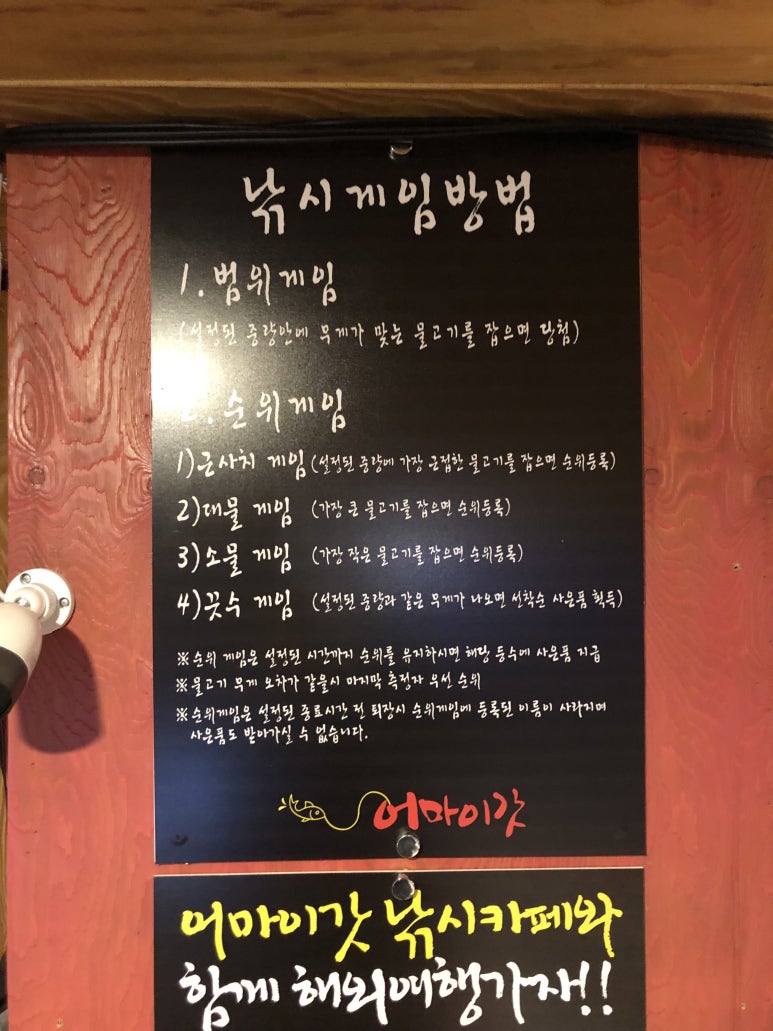 낚시게임방법
1. 범위게임
(설정된 중량안에 무게가 맞는 물고기를 잡으면 당첨)
2. 순위게임
1)근사치 게임 (설정된 중량에 가장 근접한 물고기를 잡으면 순위등록)
2)대물 게임 (가장 큰 물고기를 잡으면 순위등록)
3)소물 게임 (가장 작은 물고기를 잡으면 순위등록)
4)끗수 게임 (설정된 중량과 같은 무게가 나오면 선착순 사은품 획득)
※ 순위 게임은 설정된 시간까지 순위를 유지하시면 해당 등수에 사은품 지급
※ 물고기 무게 오차가 같을시 마지막 측정자 우선 순위
※ 순위게임은 설정된 종료시간 전 퇴장시 순위게임에 등록된 이름이 사라지며
사은품도 받아가실 수 없습니다.
어마이갓
어마이갓 낚시카페와
함께 해외여행가자!!